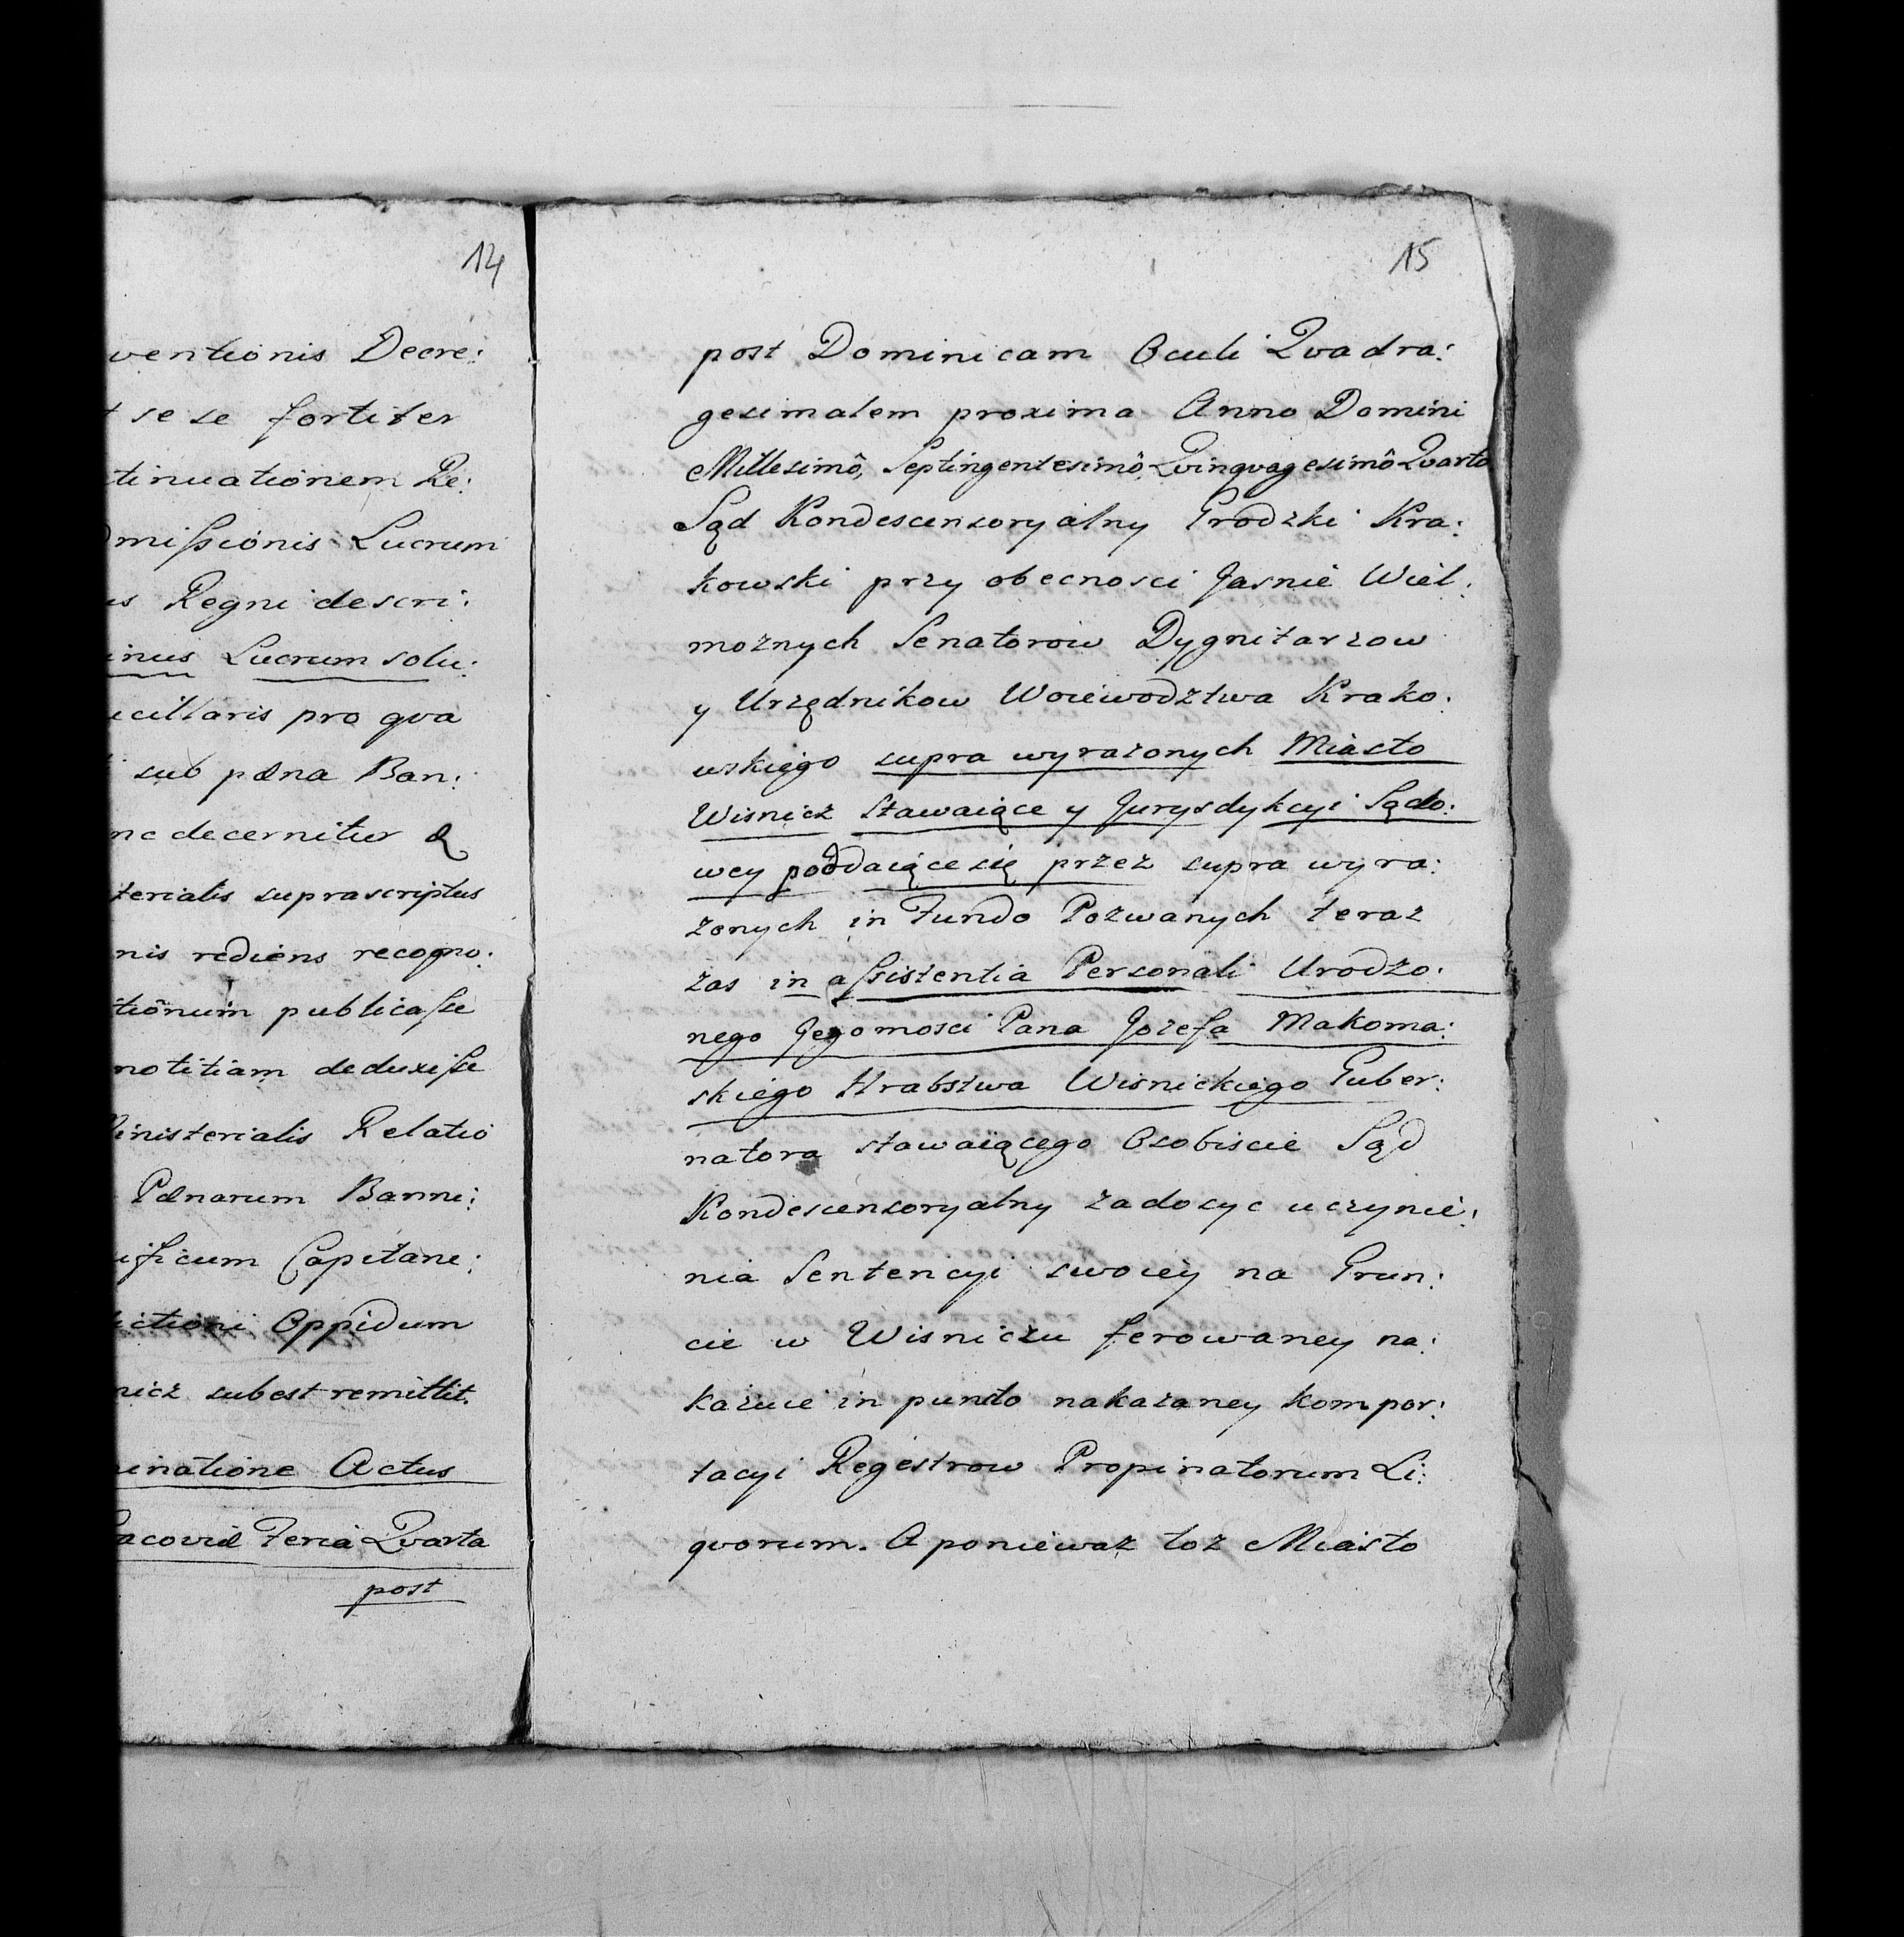 14
ventionis Decre:
t se se fortiter
tinuationem Re:
missionis Lucrum
us Regni descri:
inus Lucrum solu:
cillaris pro qva
sub pæna Ban:
nc decernitur &
terialis suprascriptus
nis rediens recogno:
tiönum publicasse
notitiam deduxisse
inisterialis Relatio
Pænarum Banni:
ificum Capitane:
ictioni Oppidum
nicz subest remittit.
inatione Actus
acoviæ Feria Qvarta
post
15
post Dominicam Oculi Qvadra:
gesimalem proxima Anno Domini
Millesimô, Septingentesimô, Qvinqvagesimô Qvarto
Sąd Kondescensoryalny Grodzki Kra:
kowski przy obecnosci Jasnie Wiel:
moznych Senatorow Dygnitarzow
y Urzędnikow Woiewodztwa Krako:
wskiego supra wyrazonych Miasto
Wisnicz stawaiące y Jurysdykcyi Sądo:
wey poddaiące się przez supra wyra:
zonych in Fundo Pozwanych teraz
zas in assistentia Personali Urodzo:
nego Jegomosci Pana Jozefa Makoma:
skiego Hrabstwa Wisnickiego Guber:
natora stawaiącego Osobiscie Sąd
Kondescensoryalny zadosyc uczynie:
nia Sentencyi swoiey na Grun:
cie w Wisniczu ferowaney na:
kazuie in puncto nakazaney kompor:
tacyi Regestrow Propinatorum Li:
qvorum. A poniewaz toz Miasto